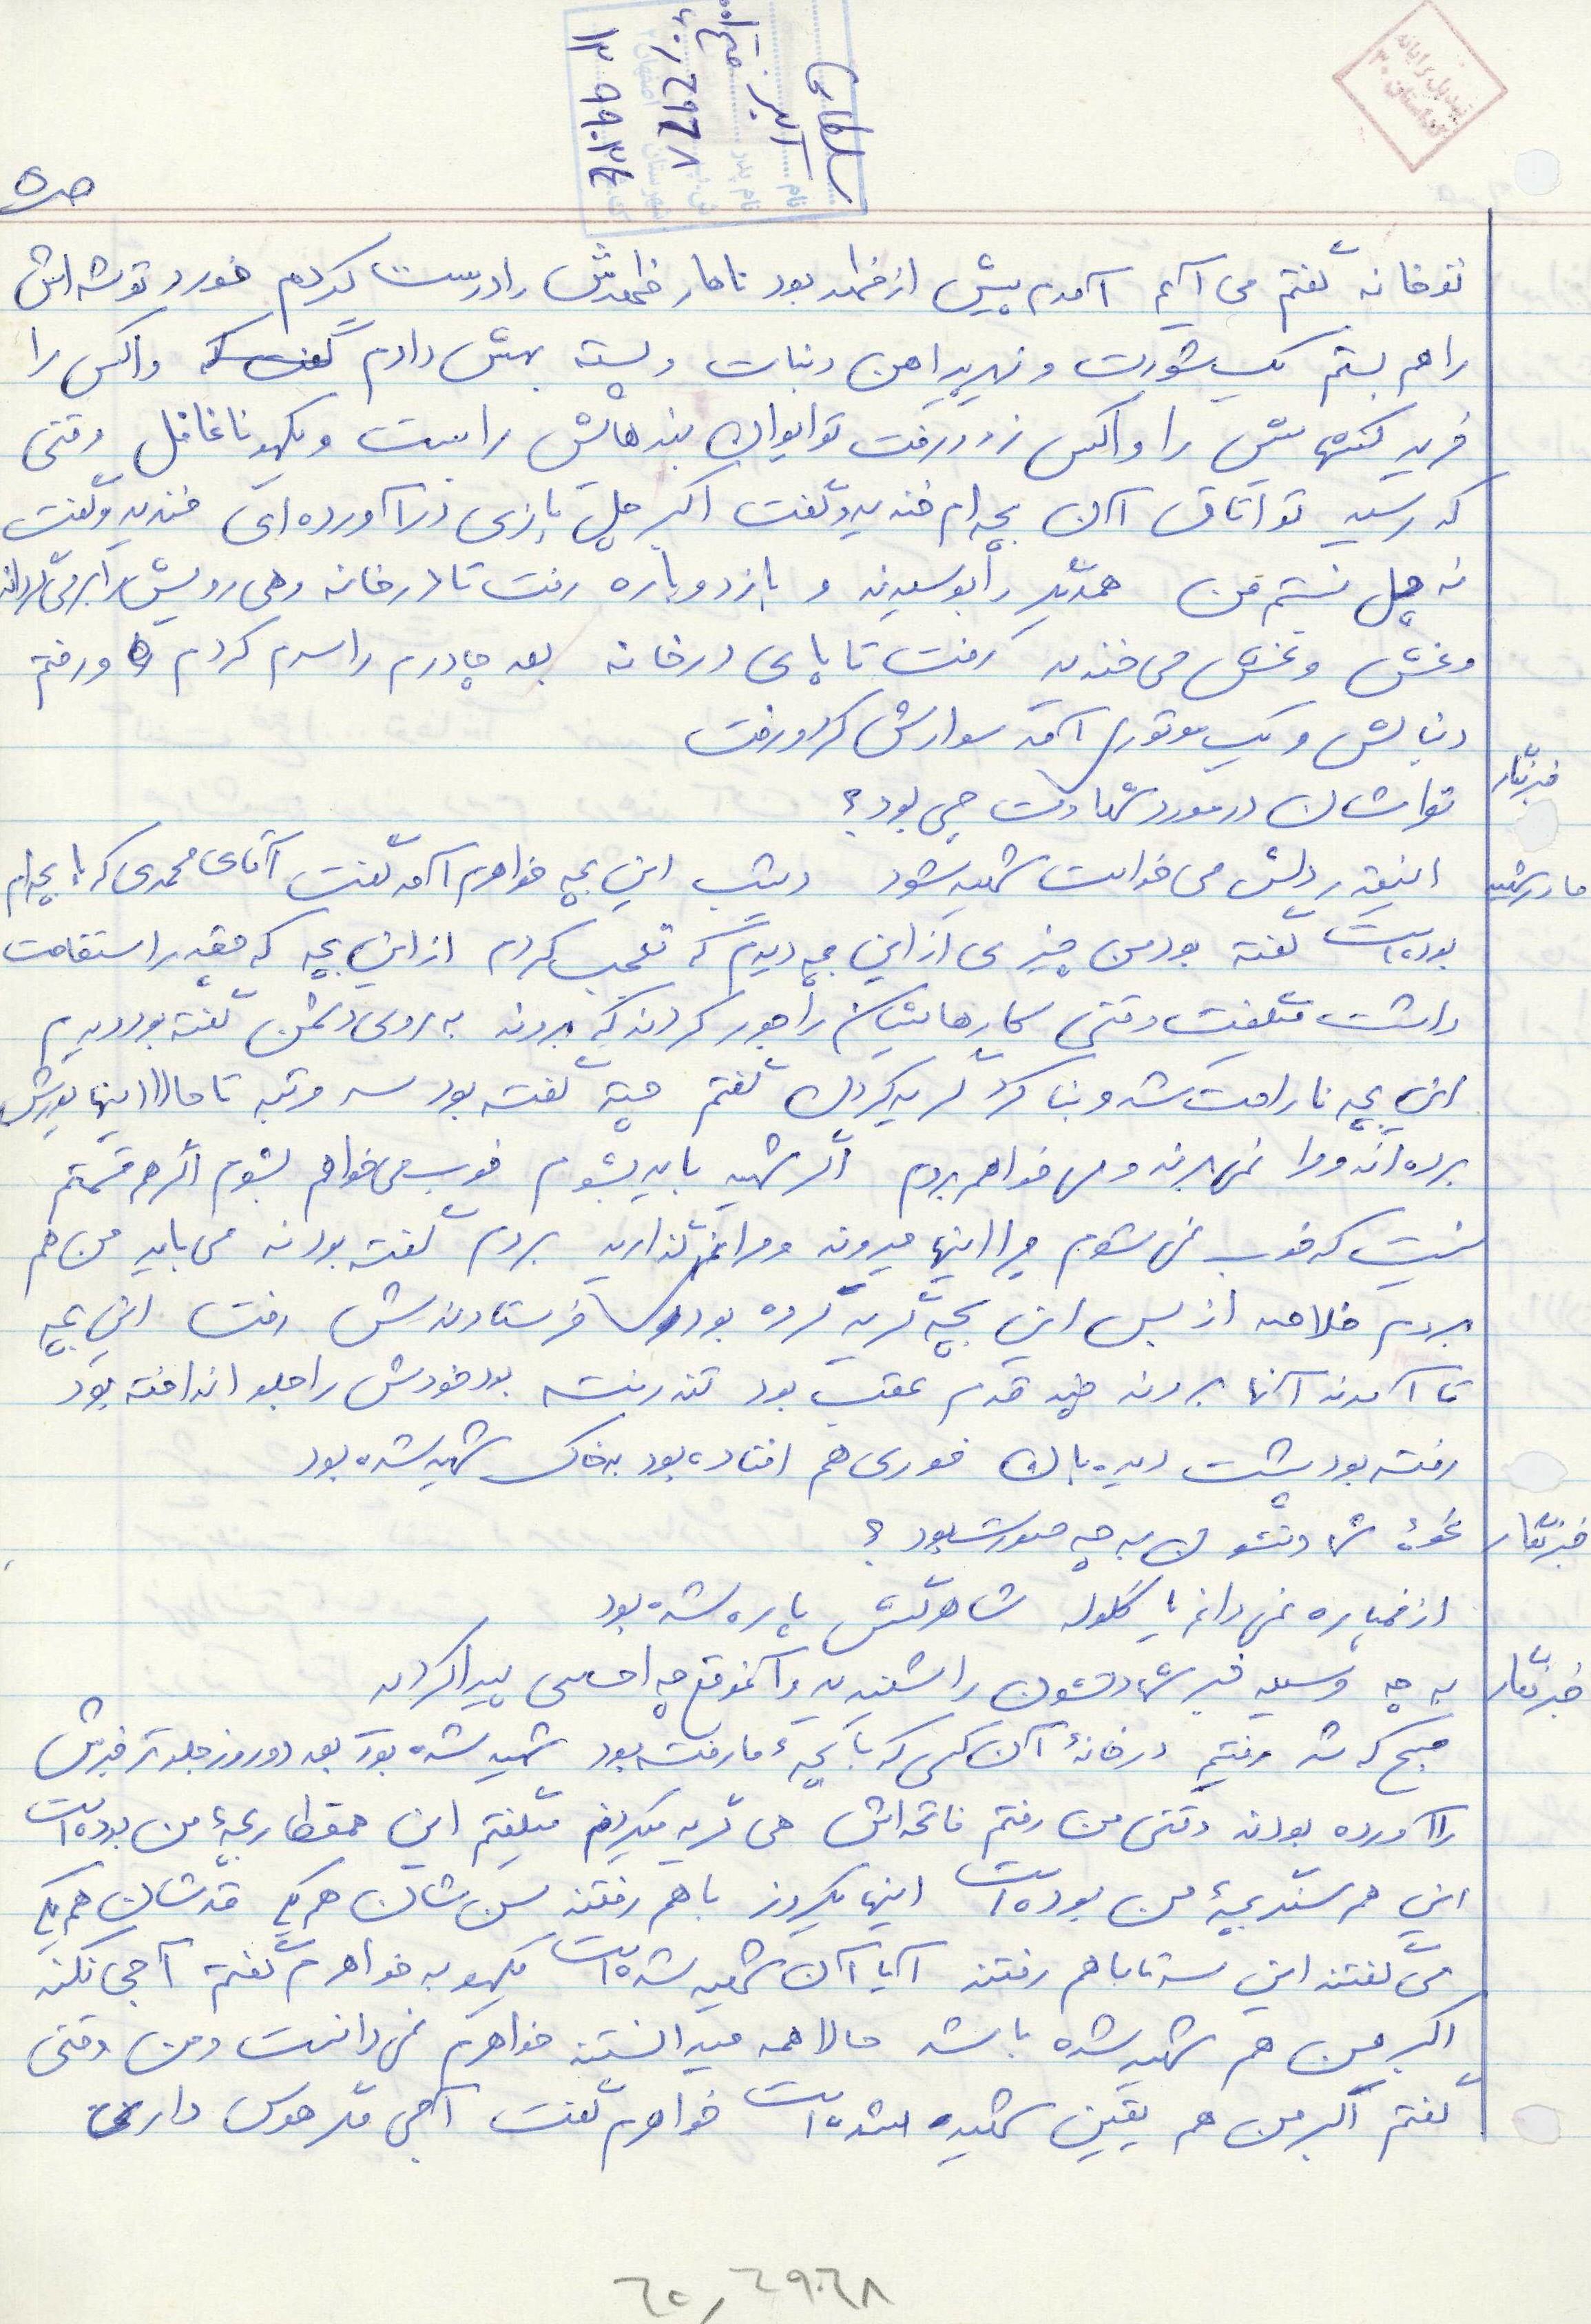 سلطانی
نام
اکبر
نام پدر
۱۳۰۹۹۰۳۴
ص۵
تو خانه گفتم می آیم آمدم پیش از ظهر بود ناهار ظهرش را درست کردم خورد توشه اش
را هم بستم یک شورت و زیرپیراهن و نبات و پسته بهش دادم واکس را
خرید کفشهایش را واکس زد و رفت تو ایوان بندهایش را بست و یکهو ناغافل وقتی
که رسید تو اتاق آن بچه ام خندید و گفت اکبر چل بازی درآورده ای خندید و گفت
نه چل نیستم من همدیگر را بوسیدند و باز دوباره رفت تا در خانه و هی رویش را برمی گرداند
و غش و غش می خندید رفت تا پای در خانه بعد چادرم را سرم کردم و رفتم
دنبالش و یک موتوری آمد سوارش کرد و رفت
خبرنگار تو اشان در مورد شهادت چی بود؟
مادر شهید اینقدر دلش می خواست شهید شود دیشب این بچه خواهرم آمد گفت آقای محمدی که با بچه ام
بوده است گفته بود من چیزی از این بچه دیدم که تعجب کردم از این بچه که چقدر استقامت
داشت میگفت وقتی کارهایشان را جور کردند که بروند به روی دشمن گفته بود دیدم
این بچه ناراحت شد و بنا کرد گریه کردن گفتم چیه گفته بود سه مرتبه تا حالا اینها یورش
برده اند و مرا نمی برند و می خواهم بروم اگر شهید باید بشوم خوب می خواهم بشوم اگر هم قسمتم
نیست که خوب نمی شوم چرا اینها میروند و مرا نمی گذارید بروم گفته بودند می باید من هم
بروم خلاصه از بس این بچه گریه کرده بود فرستادندش رفت این بچه
تا آمدند آنها بروند چند قدم عقب بود تند رفته بود خودش را جلو انداخته بود
رفته بود پشت دیده بان فوری هم افتاده بود به خاک شهید شده بود
خبرنگار نحوۀ شهادتشون به چه صورت بود؟
از خمپاره نمی دانم یا گلوله شاهرگش پاره شده بود
خبرنگار به چه وسیله خبر شهادتشون را شنیدید و آنموقع چه احساسی پیدا کردید
صبح که شد رفتیم در خانۀ آن کسی که با بچۀ ما رفته بود شهید شده بود بعد دو روز جلوتر خبرش
را آورده بودند وقتی من رفتم فاتحه اش هی گریه میکردم میگفتم این همقطار بچۀ من بوده است
این هم سنگر بچۀ من بوده است اینها یکروز با هم رفتند سن شان هم یکی قدشان هم یکی
می گفتند این سه تا با هم رفتند آیا آن شهید شده است یکهو به خواهرم گفتم آجی نکند
اکبر من هم شهید شده باشد حالا همه میدانستند خواهرم نمی دانست و من وقتی
گفتم اکبر من هم یقین شهید شده است خواهرم گفت آجی مگر هوس داری